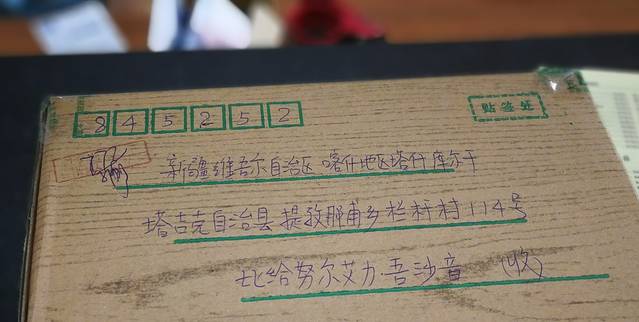 845252
贴签处
新疆维吾尔自治区 喀什地区塔什库尔干
塔吉克自治县 提孜那甫乡栏杆村114号
比给努尔艾力·吾沙音 (收)